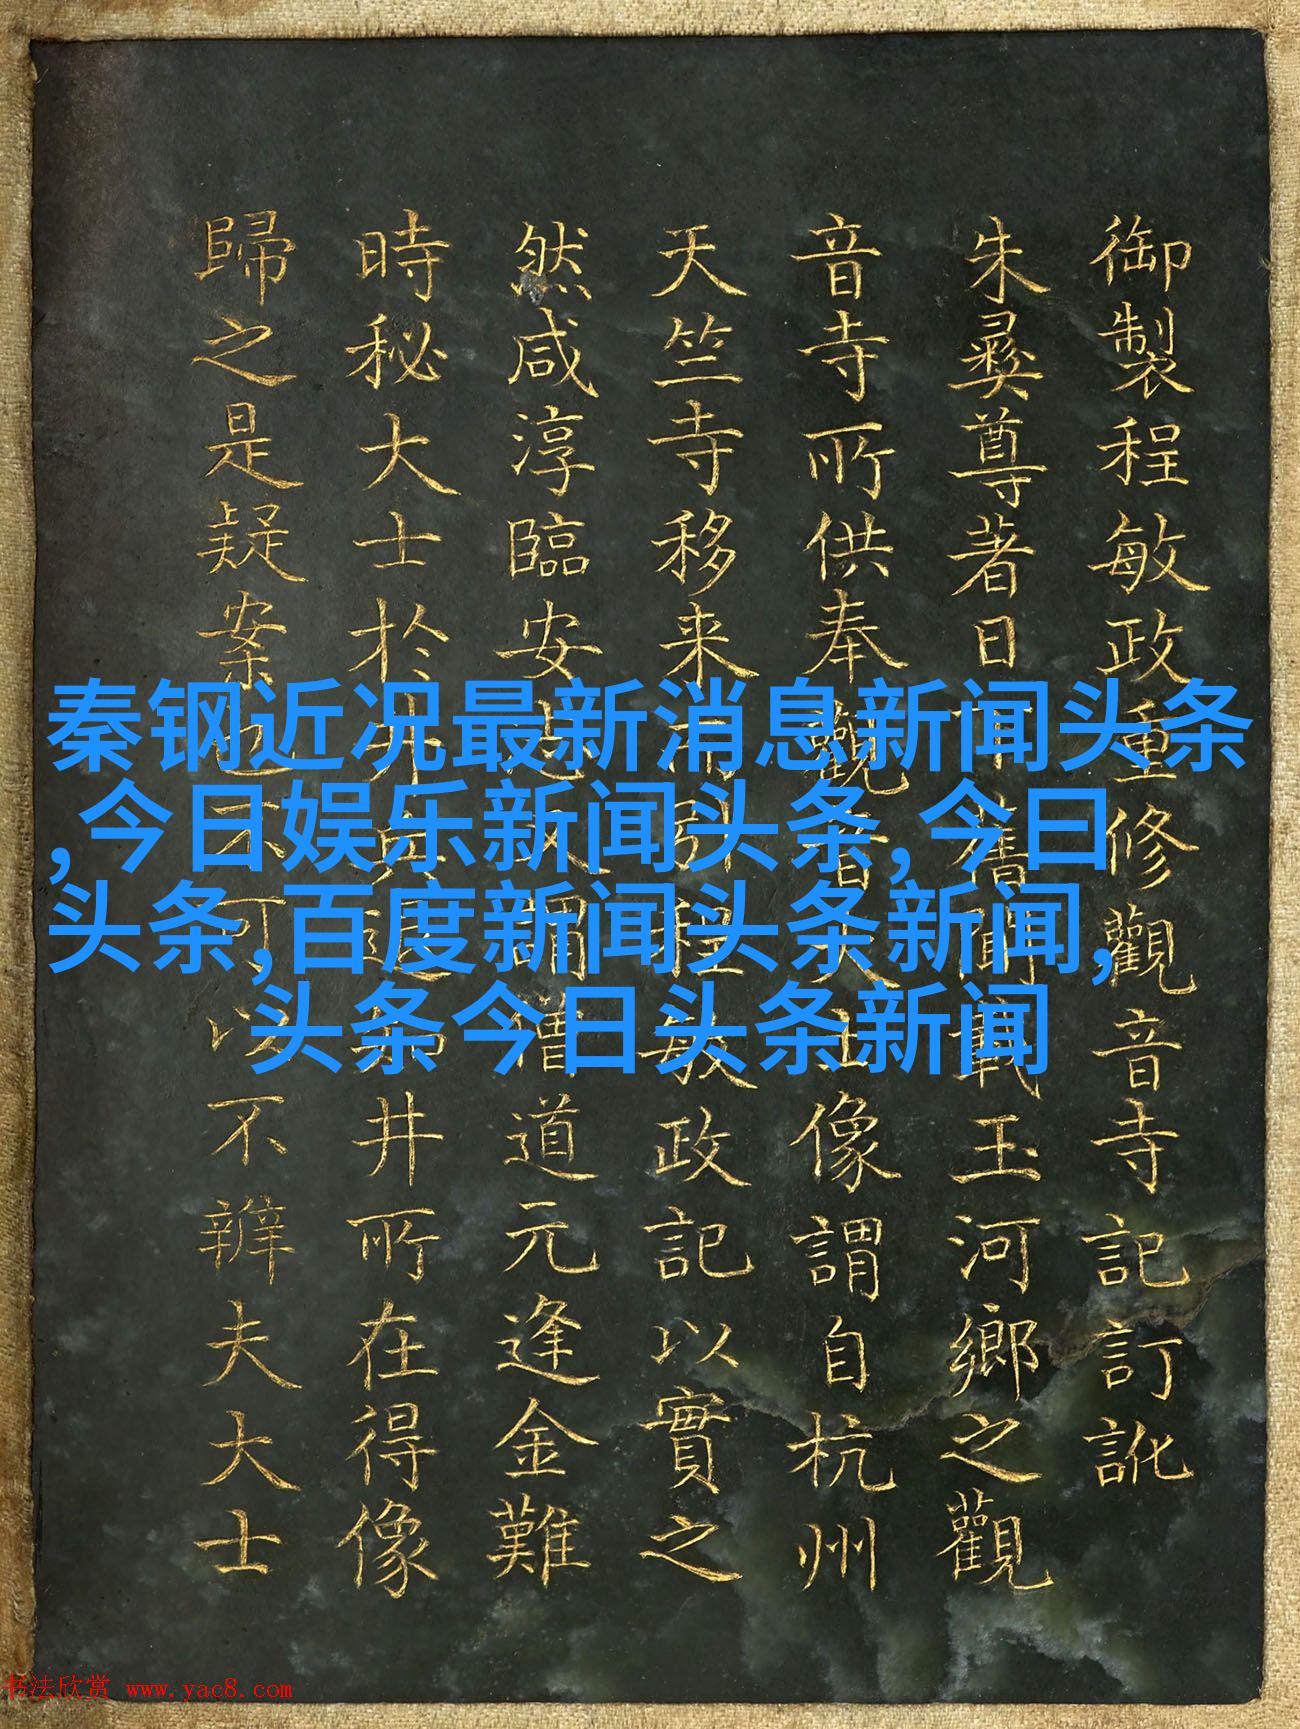 御製程敏政重修觀音寺記訂訛
朱彝尊著日下舊聞載玉河鄉之觀
音寺所供奉觀音大士像謂自杭州
天竺寺移来引程敏政記以實之
然咸淳臨安志又謂僧道元逢金難
時秘大士於井兵退井所在得像
歸之是疑案也不可以不辨夫大士
秦钢近况最新消息新闻头条
,今日娱乐新闻头条,今曰
头条,百度新闻头条新闻,
头条今日头条新闻
书法欣赏 www.yac8.com